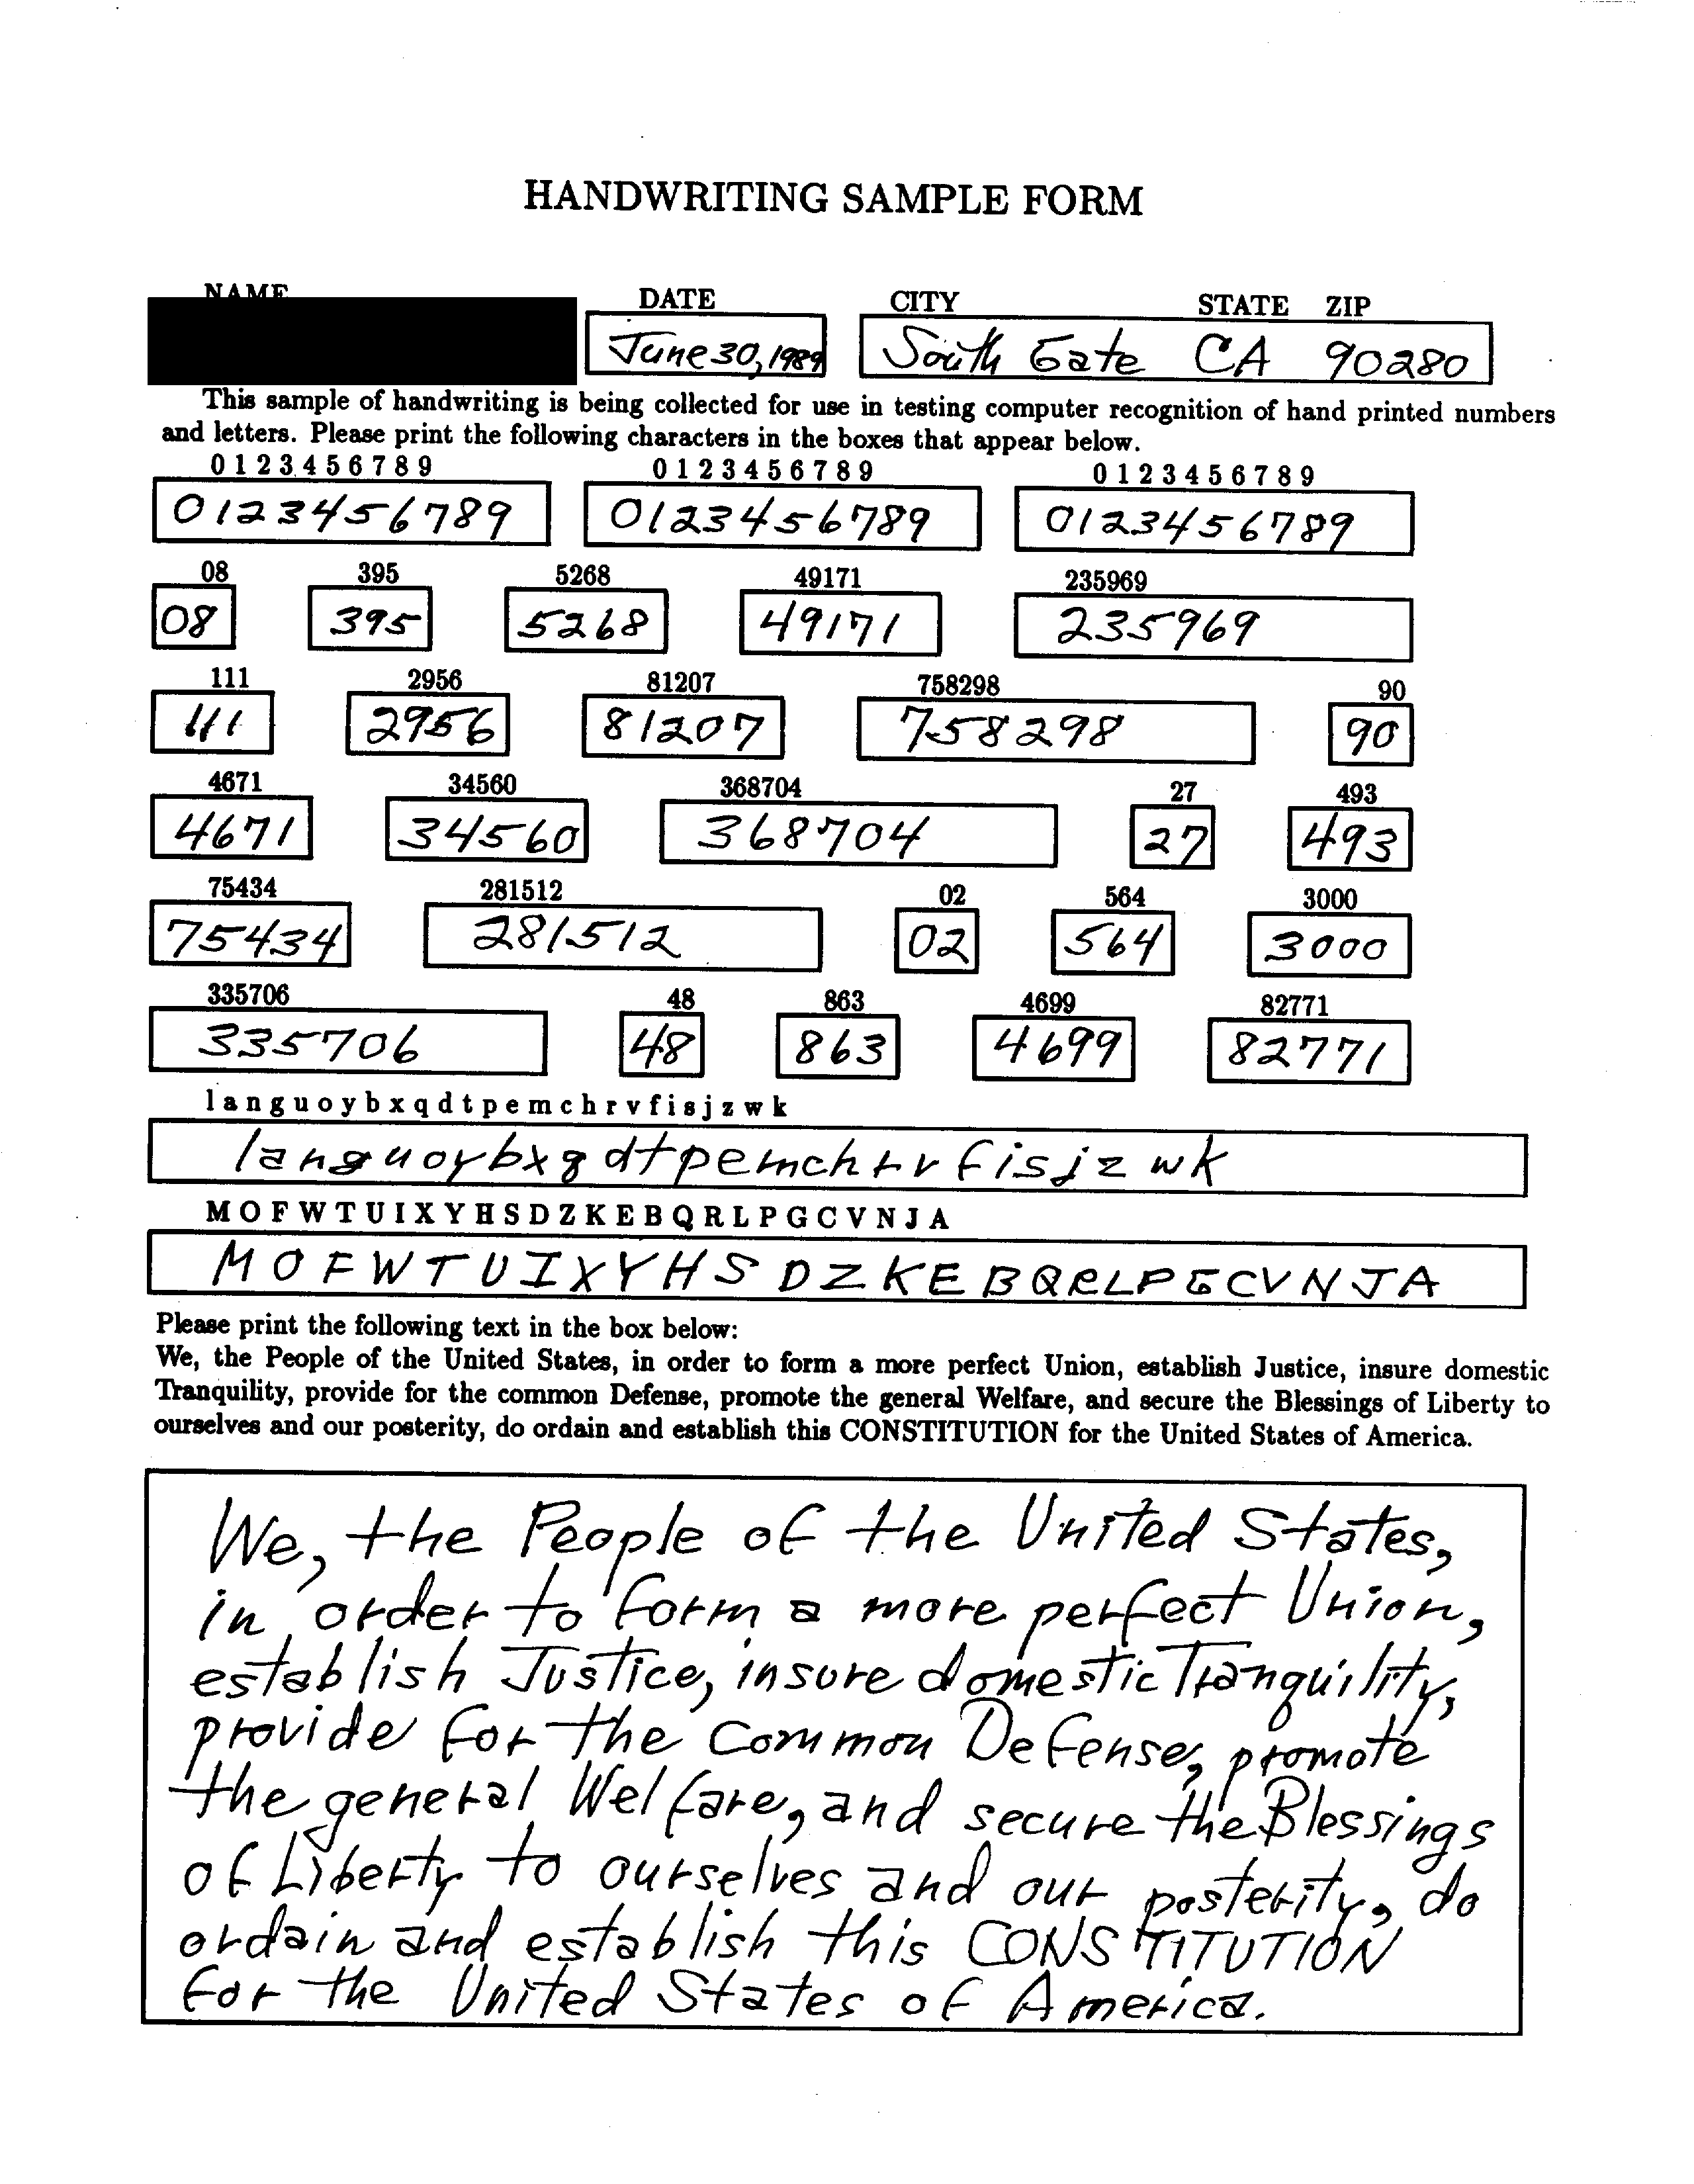 HANDWRITING SAMPLE FORM
NAME DATE CITY STATE ZIP
June 30, 1989 South Gate CA 90280
This sample of handwriting is being collected for use in testing computer recognition of hand printed numbers
and letters. Please print the following characters in the boxes that appear below.
0 1 2 3 4 5 6 7 8 9 0 1 2 3 4 5 6 7 8 9 0 1 2 3 4 5 6 7 8 9
0123456789 0123456789 0123456789
08 395 5268 49171 235969
08 395 5268 49171 235969
111 2956 81207 758298 90
111 2956 81207 758298 90
4671 34560 368704 27 493
4671 34560 368704 27 493
75434 281512 02 564 3000
75434 281512 02 564 3000
335706 48 863 4699 82771
335706 48 863 4699 82771
l a n g u o y b x q d t p e m c h r v f i s j z w k
l a n g u o y b x q d t p e m c h r v f i s j z w k
M O F W T U I X Y H S D Z K E B Q R L P G C V N J A
M O F W T U I X Y H S D Z K E B Q R L P G C V N J A
Please print the following text in the box below:
We, the People of the United States, in order to form a more perfect Union, establish Justice, insure domestic
Tranquility, provide for the common Defense, promote the general Welfare, and secure the Blessings of Liberty to
ourselves and our posterity, do ordain and establish this CONSTITUTION for the United States of America.
We, the People of the United States,
in order to form a more perfect Union,
establish Justice, insure domestic Tranquility,
provide for the Common Defense, promote
the general Welfare, and secure the Blessings
of Liberty to ourselves and our posterity, do
ordain and establish this CONSTITUTION
for the United States of America.